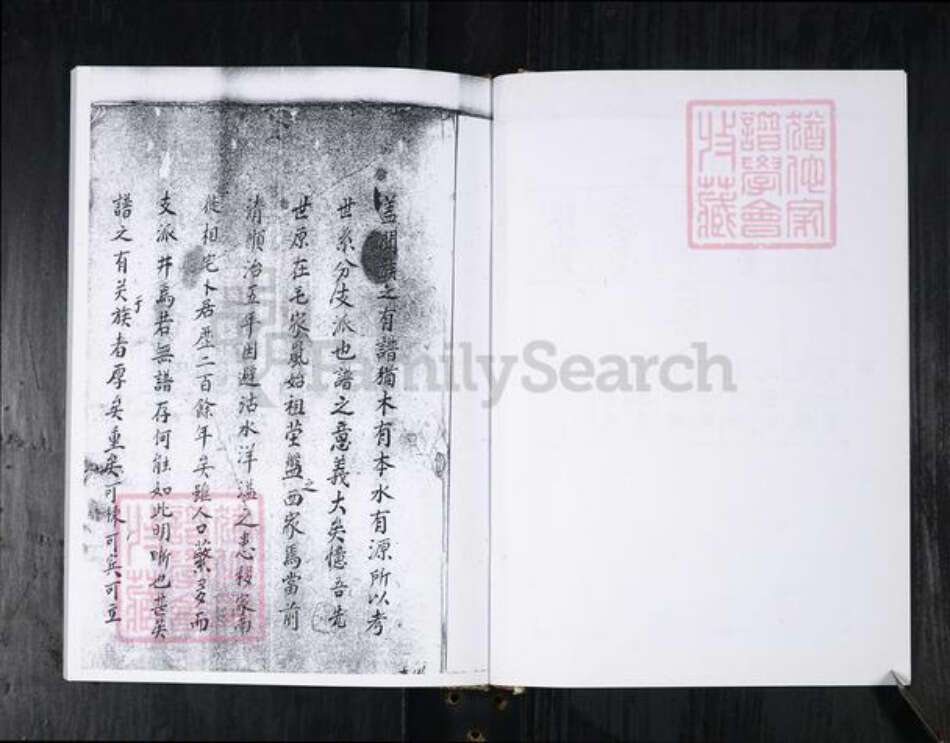 盖聞族之有譜猶木有本水有源所以考
世系分支派也譜之意義大矣憶吾先
世原在毛家嵐始祖茔盤之西家焉當前
清順治五年因避沽水洋溢之患移家南
徙相宅卜居歷二百餘年矣雖人口蕃多而
支派井焉若無譜存何能如此明晰也甚矣
譜之有关于族者厚矣重矣可
可立
猶他家
譜學會
收藏
FamilySearch